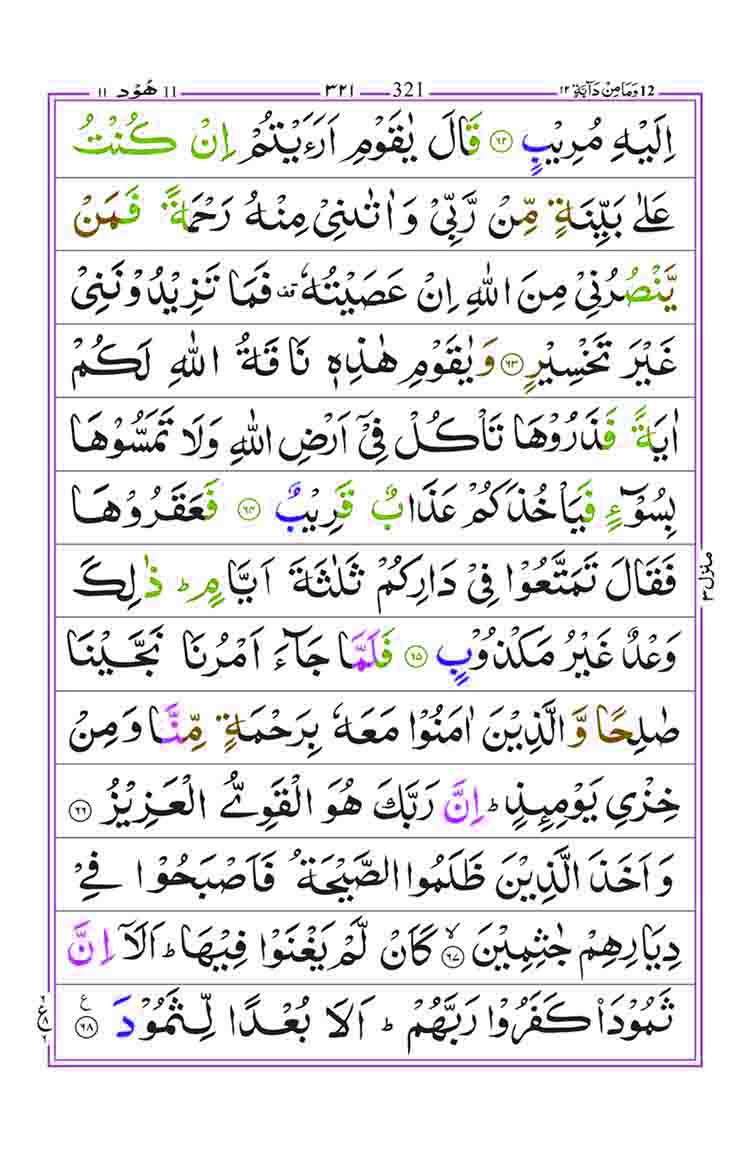 12 وَمَا مِنْ دَآبَّةٍ ١٢ 321 ٣٢١ 11 هُوْد ١١
اِلَيْهِ مُرِيْبٍ ﴿٦٢﴾ قَالَ يٰقَوْمِ اَرَءَيْتُمْ اِنْ كُنْتُ
عَلٰى بَيِّنَةٍ مِّنْ رَّبِّىْ وَاٰتٰىنِىْ مِنْهُ رَحْمَةً فَمَنْ
يَّنْصُرُنِىْ مِنَ اللّٰهِ اِنْ عَصَيْتُهٗ قف فَمَا تَزِيْدُوْنَنِىْ
غَيْرَ تَخْسِيْرٍ ﴿٦٣﴾ وَيٰقَوْمِ هٰذِهٖ نَاقَةُ اللّٰهِ لَكُمْ
اٰيَةً فَذَرُوْهَا تَاْكُلْ فِىْٓ اَرْضِ اللّٰهِ وَلَا تَمَسُّوْهَا
بِسُوْٓءٍ فَيَاْخُذَكُمْ عَذَابٌ قَرِيْبٌ ﴿٦٤﴾ فَعَقَرُوْهَا
فَقَالَ تَمَتَّعُوْا فِىْ دَارِكُمْ ثَلٰثَةَ اَيَّامٍ ؕ ذٰلِكَ
وَعْدٌ غَيْرُ مَكْذُوْبٍ ﴿٦٥﴾ فَلَمَّا جَآءَ اَمْرُنَا نَجَّيْنَا
صٰلِحًا وَّالَّذِيْنَ اٰمَنُوْا مَعَهٗ بِرَحْمَةٍ مِّنَّا وَمِنْ
خِزْىِ يَوْمِئِذٍ ؕ اِنَّ رَبَّكَ هُوَ الْقَوِىُّ الْعَزِيْزُ ﴿٦٦﴾
وَاَخَذَ الَّذِيْنَ ظَلَمُوا الصَّيْحَةُ فَاَصْبَحُوْا فِىْ
دِيَارِهِمْ جٰثِمِيْنَ ۙ﴿٦٧﴾ كَاَنْ لَّمْ يَغْنَوْا فِيْهَا ؕ اَلَاۤ اِنَّ
ثَمُوْدَا۟ كَفَرُوْا رَبَّهُمْ ؕ اَلَا بُعْدًا لِّثَمُوْدَ ﴿٦٨﴾ ع
منزل ٣
ع ٨ ٦